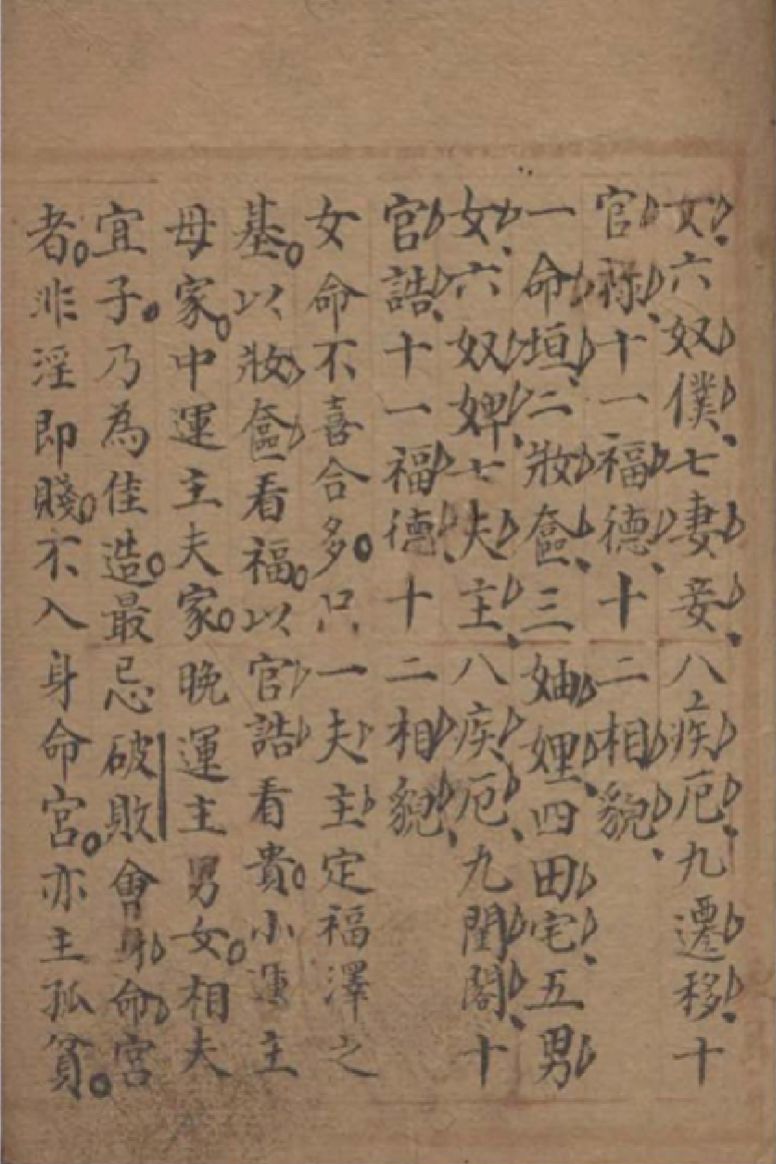 女六奴僕七妻妾八疾厄九遷移十
官祿十一福德十二相貌
一命垣二妝奩三妯娌四田宅五男
女六奴婢七夫主八疾厄九閨閣十
官誥十一福德十二相貌
女命不喜合多。只一夫主定福澤之
基。以妝奩看福。以官誥看貴。小運主
母家。中運主夫家。晚運主男女。相夫
宜子。乃為佳造。最忌破敗會身命宮
者。非淫即賤。不入身命宮。亦主孤貧。